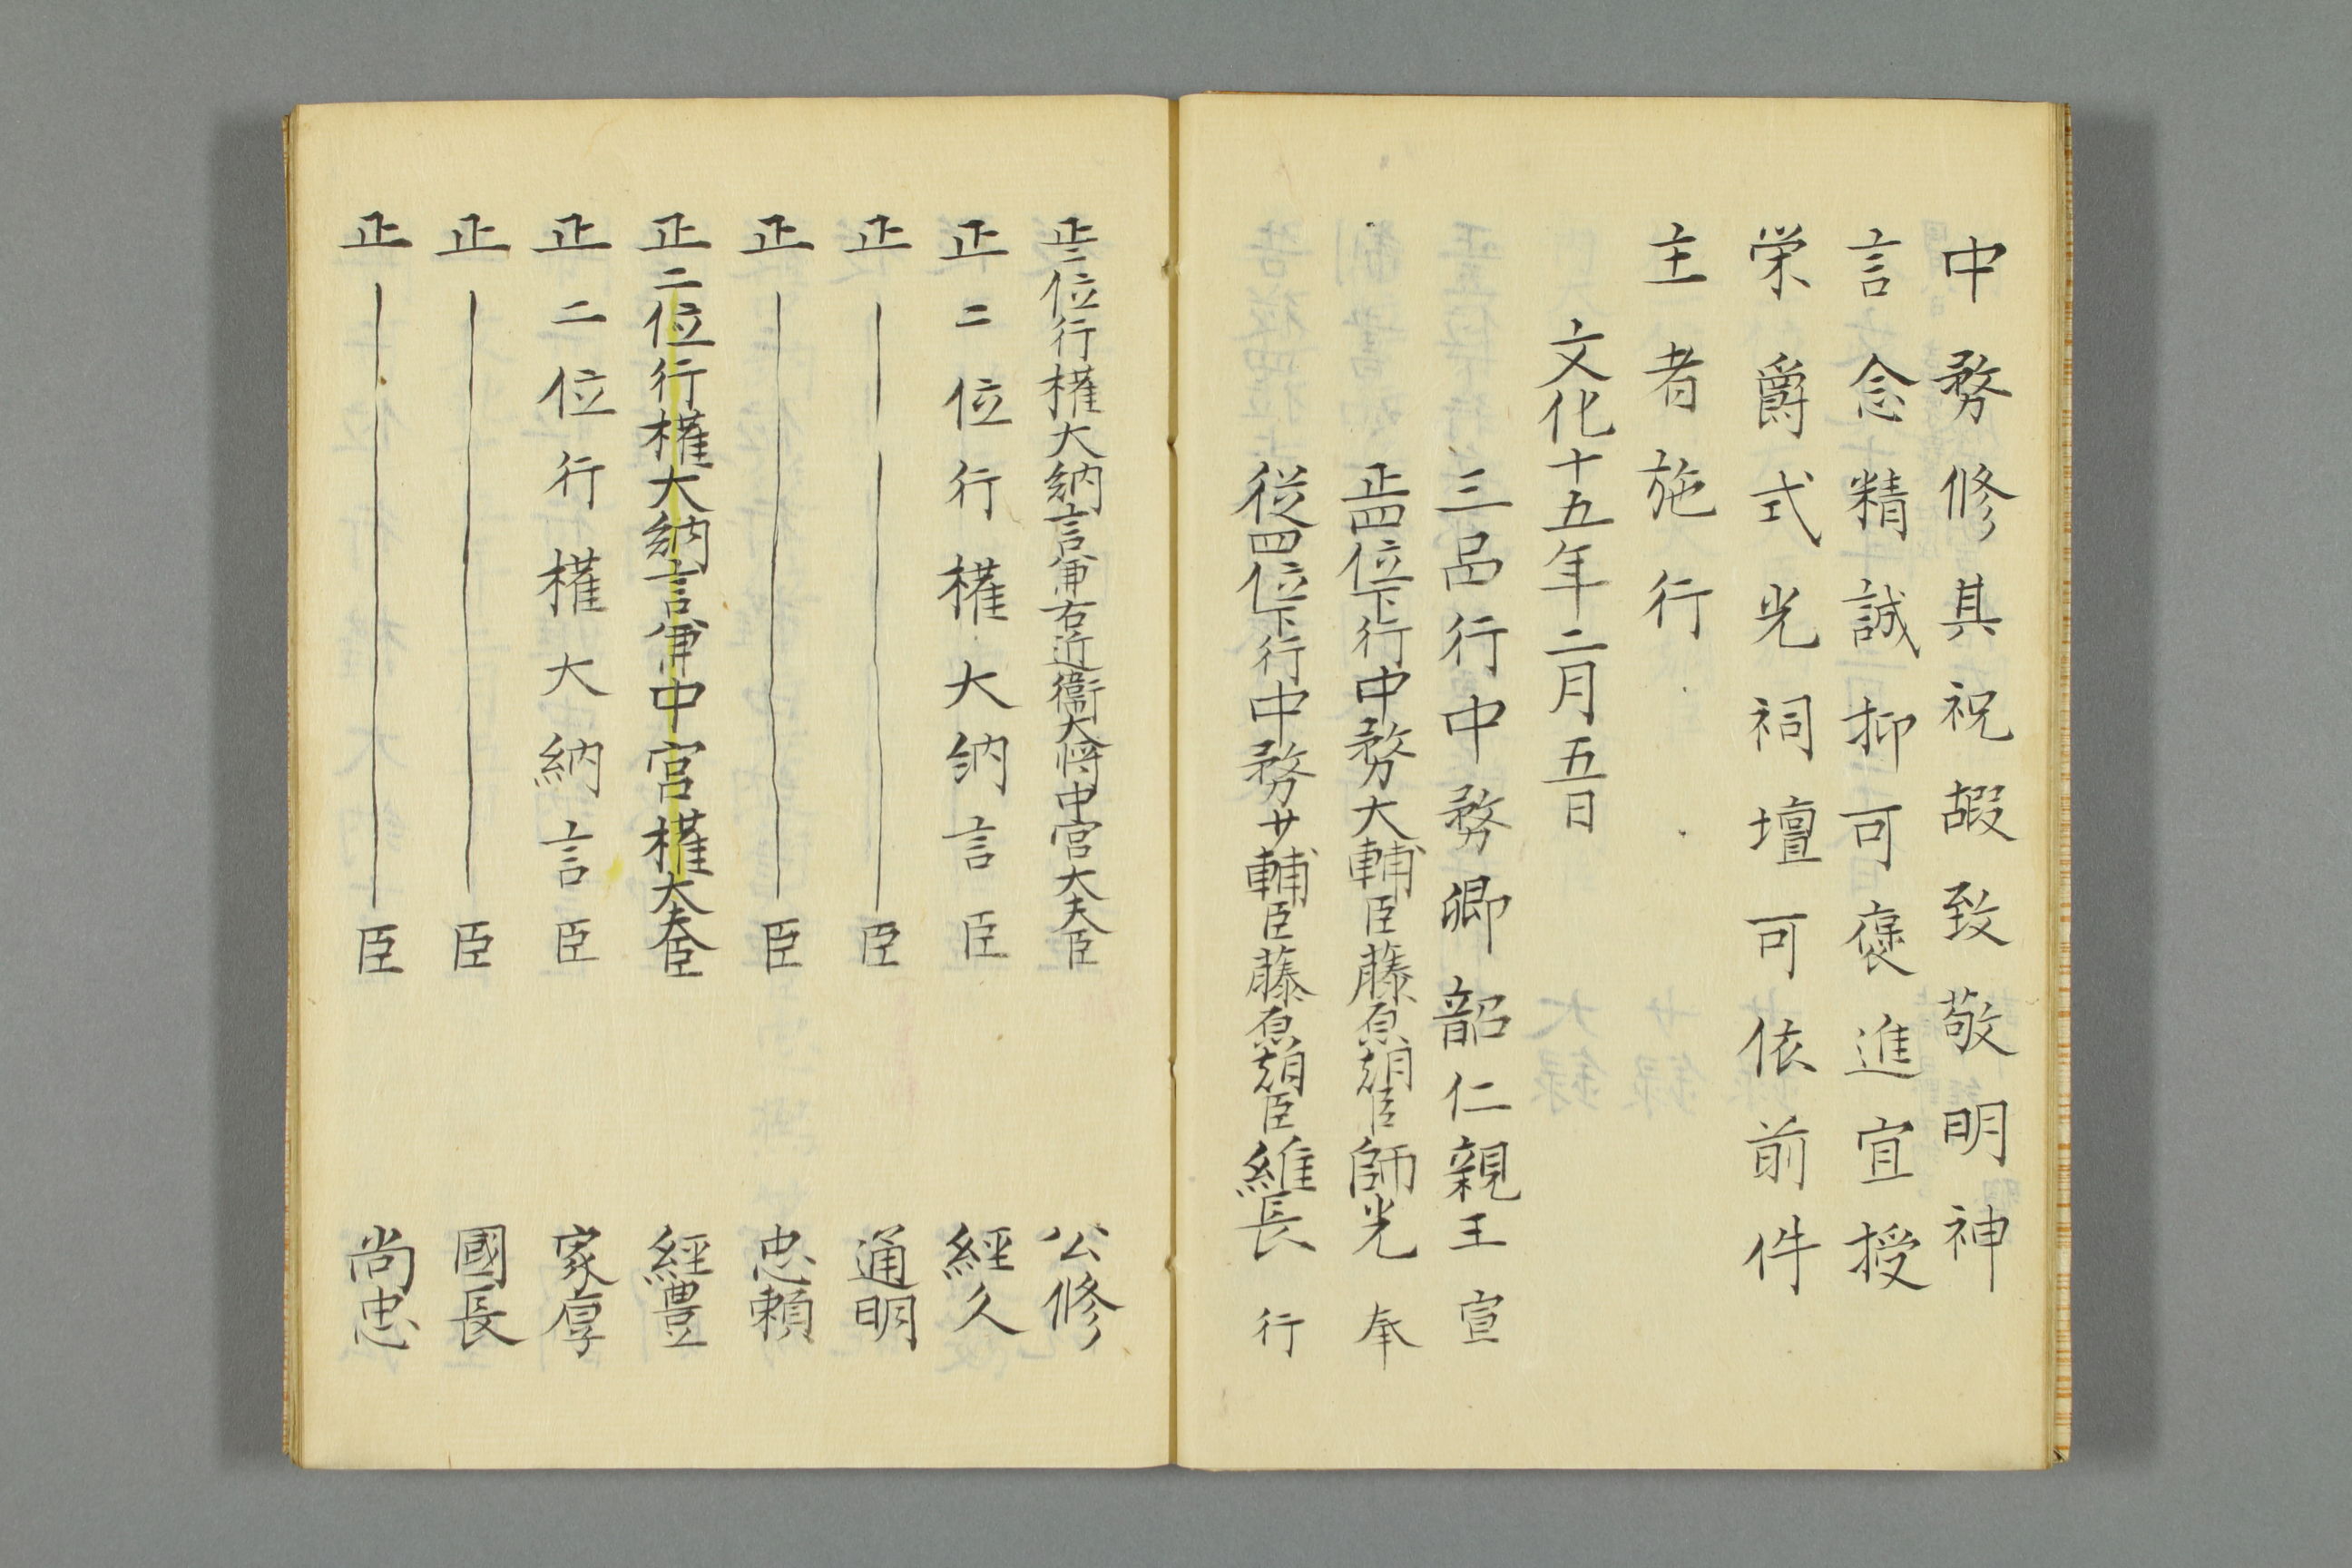 中務修其祝嘏致敬明神
言念精誠抑可褒進宜授
栄爵式光祠壇可依前件
主者施行
文化十五年二月五日
三品行中務卿韶仁親王宣
正四位下行中務大輔臣藤原朝臣師光奉
従四位下行中務少輔臣藤原朝臣維長行
正二位行権大納言兼右近衛大将中宮大夫臣公修
正二位行権大納言臣経久
正――臣通明
正――臣忠頼
正二位行権大納言兼中宮権大夫臣經豊
正二位行権大納言臣家厚
正――臣國長
正――臣尚忠